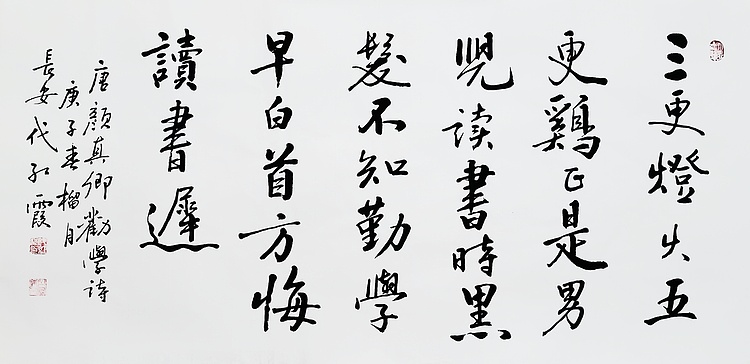 三更燈火五
更鷄正是男
兒读書時黑
髮不知勤學
早白首方悔
讀書遲
唐顏真卿勸學詩
庚子春榴月
長安代紅霞